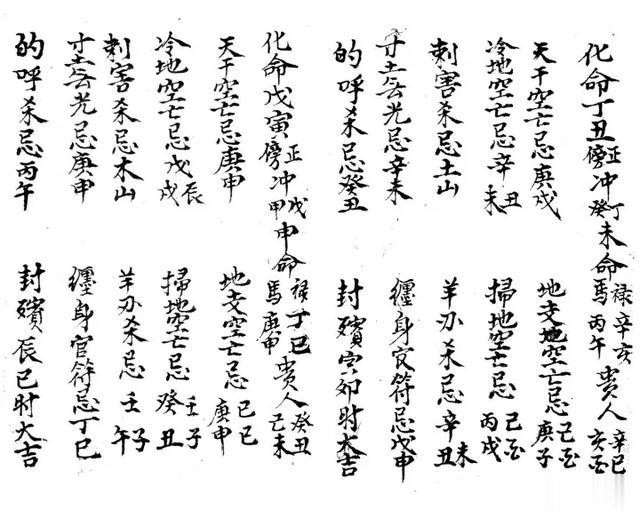 化命丁丑正傍冲丁癸未命禄辛亥馬丙午貴人辛巳亥酉
天干空亡忌庚戌 地支地空亡忌己酉庚子
冷地空亡忌辛丑未 掃地空亡忌己酉丙戌
刺害杀忌土山 羊刃杀忌辛未丑
寸土无光忌辛未 纏身官符忌戊申
的呼杀忌癸丑 封殯寅卯時大吉
化命戊寅正傍冲戊甲申命禄丁巳馬庚申貴人癸丑己未
天干空亡忌庚申 地支空亡忌己巳庚申
冷地空亡忌戊辰戌 掃地空亡忌壬子癸丑
刺害杀忌木山 羊刃杀忌壬子午
寸土无光忌庚申 纏身官符忌丁巳
的呼杀忌丙午 封殯辰巳时大吉